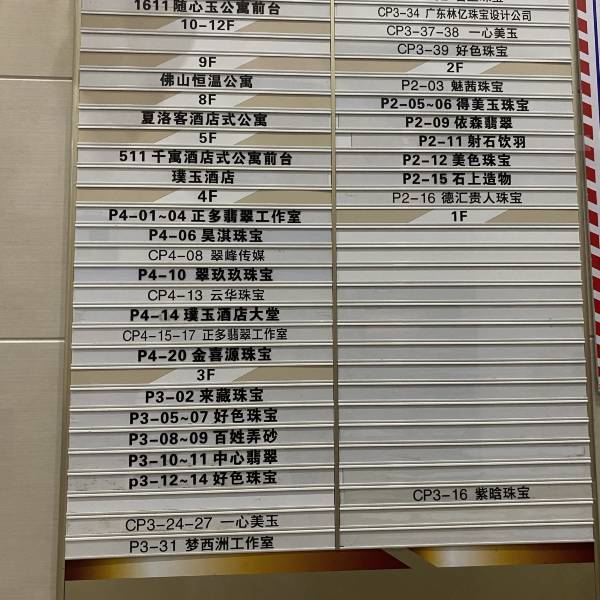 1611 随心玉公寓前台
10-12F
9F
佛山恒温公寓
8F
夏洛客酒店式公寓
5F
511 千寓酒店式公寓前台
璞玉酒店
4F
P4-01~04 正多翡翠工作室
P4-06 昊淇珠宝
CP4-08 翠峰传媒
P4-10 翠玖玖珠宝
CP4-13 云华珠宝
P4-14 璞玉酒店大堂
CP4-15-17 正多翡翠工作室
P4-20 金喜源珠宝
3F
P3-02 来藏珠宝
P3-05~07 好色珠宝
P3-08~09 百姓弄砂
P3-10~11 中心翡翠
p3-12~14 好色珠宝
CP3-24-27 一心美玉
P3-31 梦西洲工作室
CP3-34 广东林亿珠宝设计公司
CP3-37-38 一心美玉
CP3-39 好色珠宝
2F
P2-03 魅茜珠宝
P2-05~06 得美玉珠宝
P2-09 依森翡翠
P2-11 射石饮羽
P2-12 美色珠宝
P2-15 石上造物
P2-16 德汇贵人珠宝
1F
CP3-16 紫晗珠宝